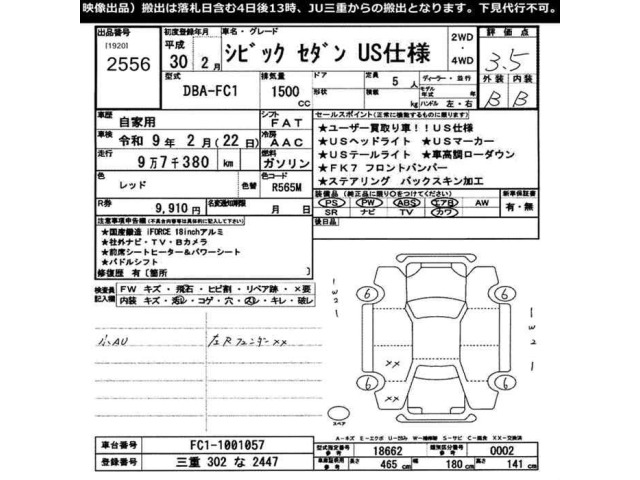 映像出品）搬出は落札日含む4日後13時、JU三重からの搬出となります。下見代行不可。
出品番号 初度登録年月 車名・グレード 2WD・4WD 評価点
[1920] 2556 平成 30 2月 シビック セダン US仕様 3.5
外装 内装
B B
型式 DBA-FC1 排気量 1500 CC ドア 形状 定員 5人 積載 kg ディーラー・並行 モデル年式 年 ハンドル 左・右
車歴 自家用 シフト FAT
車検 令和 9年 2月(22日) 冷房 AAC
走行 9万7千380 km 燃料 ガソリン
色 レッド 色替 色コード R565M
R券 9,910円 名変通知期限 月 日
セールスポイント(正常に機能するものに限ります)
★ユーザー買取り車!!US仕様
★USヘッドライト ★USマーカー
★USテールライト ★車高調ローダウン
★FK7 フロントバンパー
★ステアリング バックスキン加工
装備品(純正品に限り○をつけてください) 新車保証書
PS PW ABS エアB AW 有・無
SR ナビ TV カワ
後日品
注意事項申告欄(不具合内容等は具体的に記入して下さい)
★国産鍛造 iFORCE 18inchアルミ
★社外ナビ・TV・Bカメラ
★前席シートヒーター&パワーシート
★パドルシフト
修復歴 有〔箇所 〕
検査員記入欄 FW キズ・飛石・ヒビ割・リペア跡・×要
内装 キズ・汚レ・コゲ・穴・スレ・キレ・破レ
小AU 左Rフェンダー××
6 6
W2 W2
××
××
6 6
スペア
A-キズ E-エクボ U-凹み W-補修跡 S-サビ C-腐食 XX-交換済
車台番号 FC1-1001057
登録番号 三重 302 な 2447
型式指定番号 参考 18662 類別区分番号 参考 0002
車庫証明用 参考 長さ 465 cm 幅 180 cm 高さ 141 cm